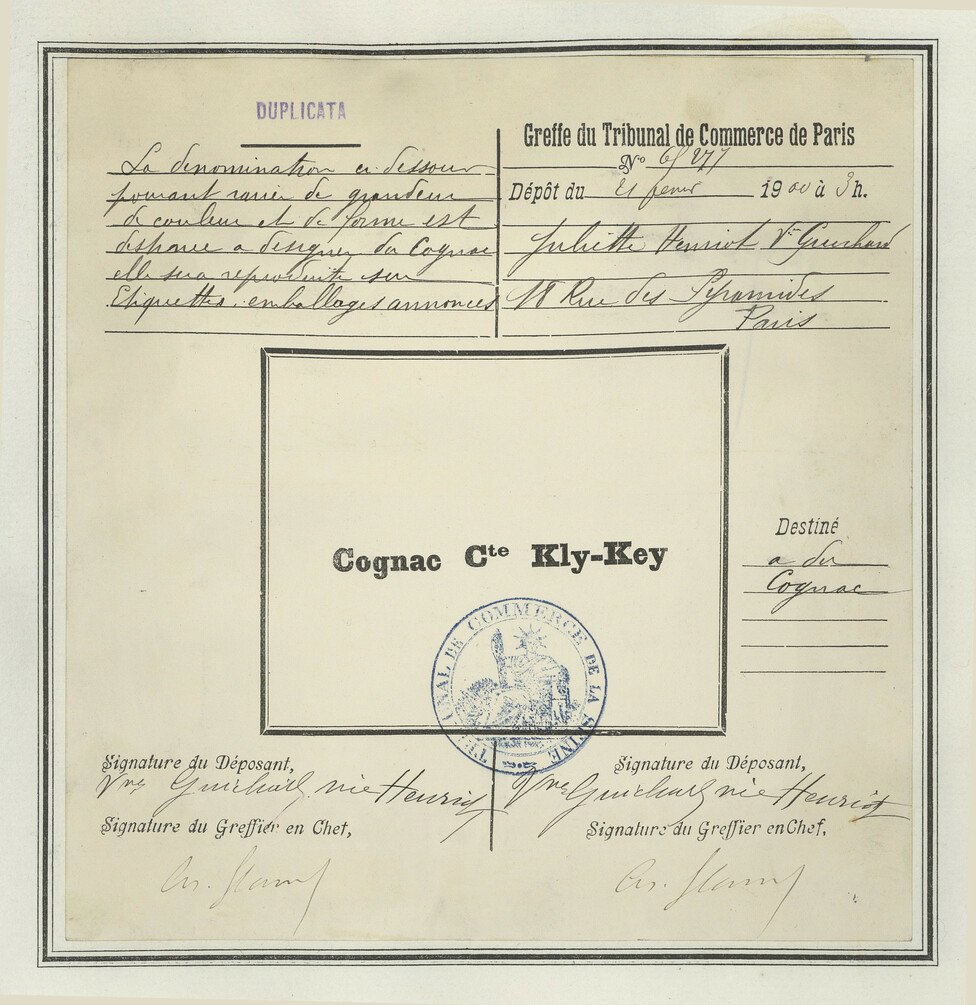 DUPLICATA
La dénomination ci dessous
pouvant varier de grandeur
de couleur et de forme est
destinée a designer du Cognac
elle sera reproduite sur
Etiquettes, emballages annonces
Greffe du Tribunal de Commerce de Paris
No
Dépôt du 21 fevrier 1900 à 3 h.
Juliette Henriot Vve Guichard
18 Rue des Pyramides
Paris
Cognac Cte Kly-Key
Destiné
a du
Cognac
TRIBUNAL DE COMMERCE DE LA SEINE
Signature du Déposant,
Vve Guichard née Henriot
Signature du Greffier en Chef,
Signature du Déposant,
Vve Guichard née Henriot
Signature du Greffier en Chef,